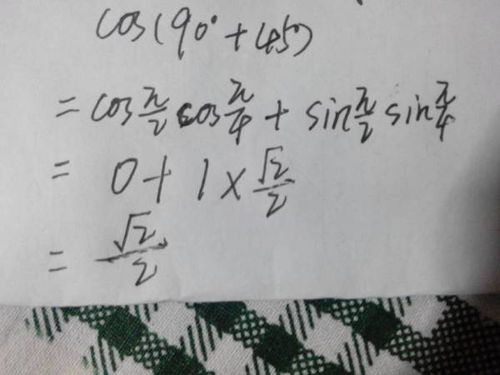 cos(90°+45°)
=cos π/2 cos π/4 + sin π/2 sin π/4
= 0+1×√2/2
= √2/2